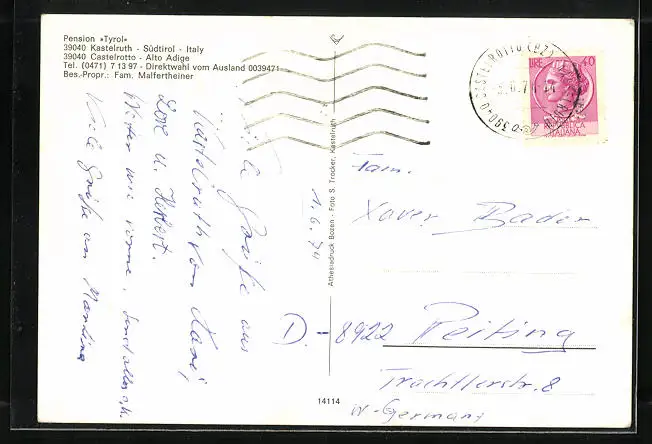 Pension »Tyrol«
39040 Kastelruth - Südtirol - Italy
39040 Castelrotto - Alto Adige
Tel. (0471) 7 13 97 - Direktwahl vom Ausland 0039471
Bes.-Propr.: Fam. Malfertheiner
Viele Grüße aus
Kastelruth von
Lore u. Herbert.
Wetter wie vorne, sonst alles o.k.
Viele Grüße an Martina
1.6.74
Athesiadruck Bozen - Foto S. Trocker, Kastelruth
14114
39040 CASTELROTTO (BZ)
LIRE 40
REPUBBLICA
ITALIANA
Fam.
Xaver Bader
D - 8922 Peiting
Trachtlerstr. 8
W-Germany